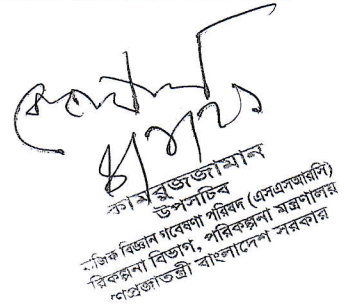 কামরুজজামান
উপসচিব
জিক বিজ্ঞান গবেষণা পরিষদ (এসএসআরসি)
রিকল্পনা বিভাগ, পরিকল্পনা মন্ত্রণালয়
ণপ্রজাতন্ত্রী বাংলাদেশ সরকার